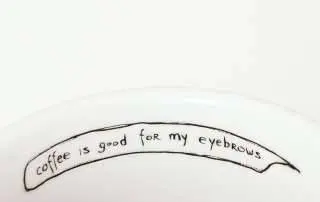 coffee is good foR my eyebRows.